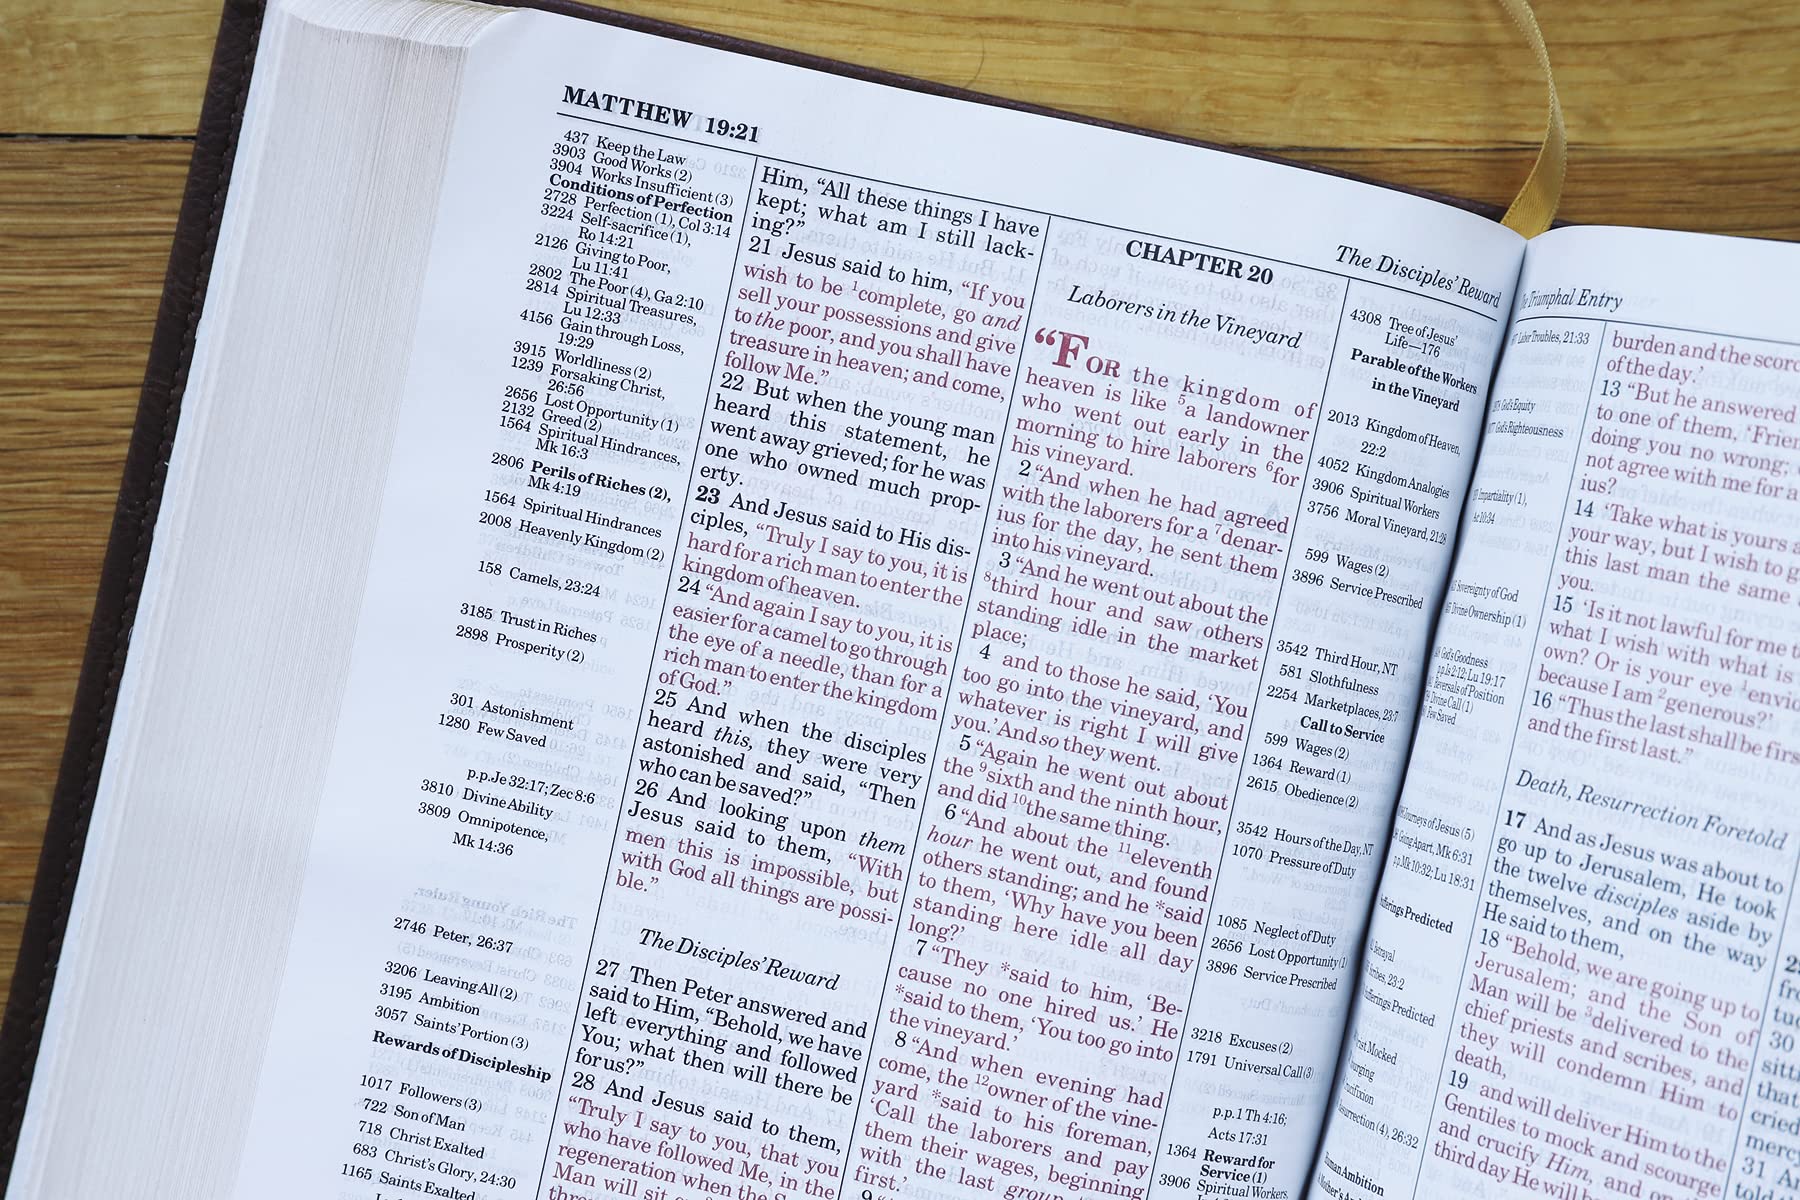 MATTHEW 19:21
437 Keep the Law
3903 Good Works (2)
3904 Works Insufficient (3)
Conditions of Perfection
2728 Perfection (1), Col 3:14
3224 Self-sacrifice (1),
Ro 14:21
2126 Giving to Poor,
Lu 11:41
2802 The Poor (4), Ga 2:10
2814 Spiritual Treasures,
Lu 12:33
4156 Gain through Loss,
19:29
3915 Worldliness (2)
1239 Forsaking Christ,
26:56
2656 Lost Opportunity (1)
2132 Greed (2)
1564 Spiritual Hindrances,
Mk 16:3
2806 Perils of Riches (2),
Mk 4:19
1564 Spiritual Hindrances
2008 Heavenly Kingdom (2)
158 Camels, 23:24
3185 Trust in Riches
2898 Prosperity (2)
301 Astonishment
1280 Few Saved
p.p. Je 32:17; Zec 8:6
3810 Divine Ability
3809 Omnipotence,
Mk 14:36
2746 Peter, 26:37
3206 Leaving All (2)
3195 Ambition
3057 Saints' Portion (3)
Rewards of Discipleship
1017 Followers (3)
722 Son of Man
718 Christ Exalted
683 Christ's Glory, 24:30
1165 Saints Exalted
Him, “All these things I have
kept; what am I still lack-
ing?”
21 Jesus said to him, “If you
wish to be 1complete, go and
sell your possessions and give
to the poor, and you shall have
treasure in heaven; and come,
follow Me.”
22 But when the young man
heard this statement, he
went away grieved; for he was
one who owned much prop-
erty.
23 And Jesus said to His dis-
ciples, “Truly I say to you, it is
hard for a rich man to enter the
kingdom of heaven.
24 “And again I say to you, it is
easier for a camel to go through
the eye of a needle, than for a
rich man to enter the kingdom
of God.”
25 And when the disciples
heard this, they were very
astonished and said, “Then
who can be saved?”
26 And looking upon them
Jesus said to them, “With
men this is impossible, but
with God all things are possi-
ble.”
The Disciples' Reward
27 Then Peter answered and
said to Him, “Behold, we have
left everything and followed
You; what then will there be
for us?”
28 And Jesus said to them,
“Truly I say to you, that you
who have followed Me, in the
regeneration when the
Man will sit
CHAPTER 20
Laborers in the Vineyard
“FOR the kingdom of
heaven is like 5a landowner
who went out early in the
morning to hire laborers 6for
his vineyard.
2 “And when he had agreed
with the laborers for a 7denar-
ius for the day, he sent them
into his vineyard.
3 “And he went out about the
8third hour and saw others
standing idle in the market
place;
4 and to those he said, ‘You
too go into the vineyard, and
whatever is right I will give
you.’ And so they went.
5 “Again he went out about
the 9sixth and the ninth hour,
and did 10the same thing.
6 “And about the 11eleventh
hour he went out, and found
others standing; and he *said
to them, ‘Why have you been
standing here idle all day
long?’
7 “They *said to him, ‘Be-
cause no one hired us.’ He
*said to them, ‘You too go into
the vineyard.’
8 “And when evening had
come, the 12owner of the vine-
yard *said to his foreman,
‘Call the laborers and pay
them their wages, beginning
with the last group
first.’
The Disciples' Reward
4308 Tree of Jesus'
Life—176
Parable of the Workers
in the Vineyard
2013 Kingdom of Heaven,
22:2
4052 Kingdom Analogies
3906 Spiritual Workers
3756 Moral Vineyard, 21:28
599 Wages (2)
3896 Service Prescribed
3542 Third Hour, NT
581 Slothfulness
2254 Marketplaces, 23:7
Call to Service
599 Wages (2)
1364 Reward (1)
2615 Obedience (2)
3542 Hours of the Day, NT
1070 Pressure of Duty
1085 Neglect of Duty
2656 Lost Opportunity (1)
3896 Service Prescribed
3218 Excuses (2)
1791 Universal Call (3)
p.p. 1 Th 4:16;
Acts 17:31
1364 Reward for
Service (1)
3906 Spiritual Workers,
Triumphal Entry
Labor Troubles, 21:33
God's Equity
God's Righteousness
Impartiality (1),
Ac 10:34
Sovereignty of God
Divine Ownership (1)
God's Goodness
p.p. Is 2:12; Lu 19:17
Reversals of Position
Divine Call (1)
Few Saved
Journeys of Jesus (5)
Going Apart, Mk 6:31
p.p. Mk 10:32; Lu 18:31
Sufferings Predicted
Betrayal
Scribes, 23:2
Sufferings Predicted
Christ Mocked
Scourging
Crucifixion
Resurrection (4), 26:32
Human Ambition
burden and the
of the day.’
13 “But he answered
to one of them,
doing you no wrong;
not agree with me for a
ius?
14 ‘Take what is yours
your way, but I wish to
this last man the same
you.
15 ‘Is it not lawful for me
what I wish with what is
own? Or is your eye
because I am 2generous?’
16 “Thus the last shall be first
and the first last.”
Death, Resurrection Foretold
17 And as Jesus was about to
go up to Jerusalem, He took
the twelve disciples aside by
themselves, and on the way
He said to them,
18 “Behold, we are going up to
Jerusalem; and the Son of
Man will be 3delivered to the
chief priests and scribes, and
they will condemn Him to
death,
19 and will deliver Him to the
Gentiles to mock and scourge
and crucify Him, and
third day He will be
30
that
cried
mercy
31